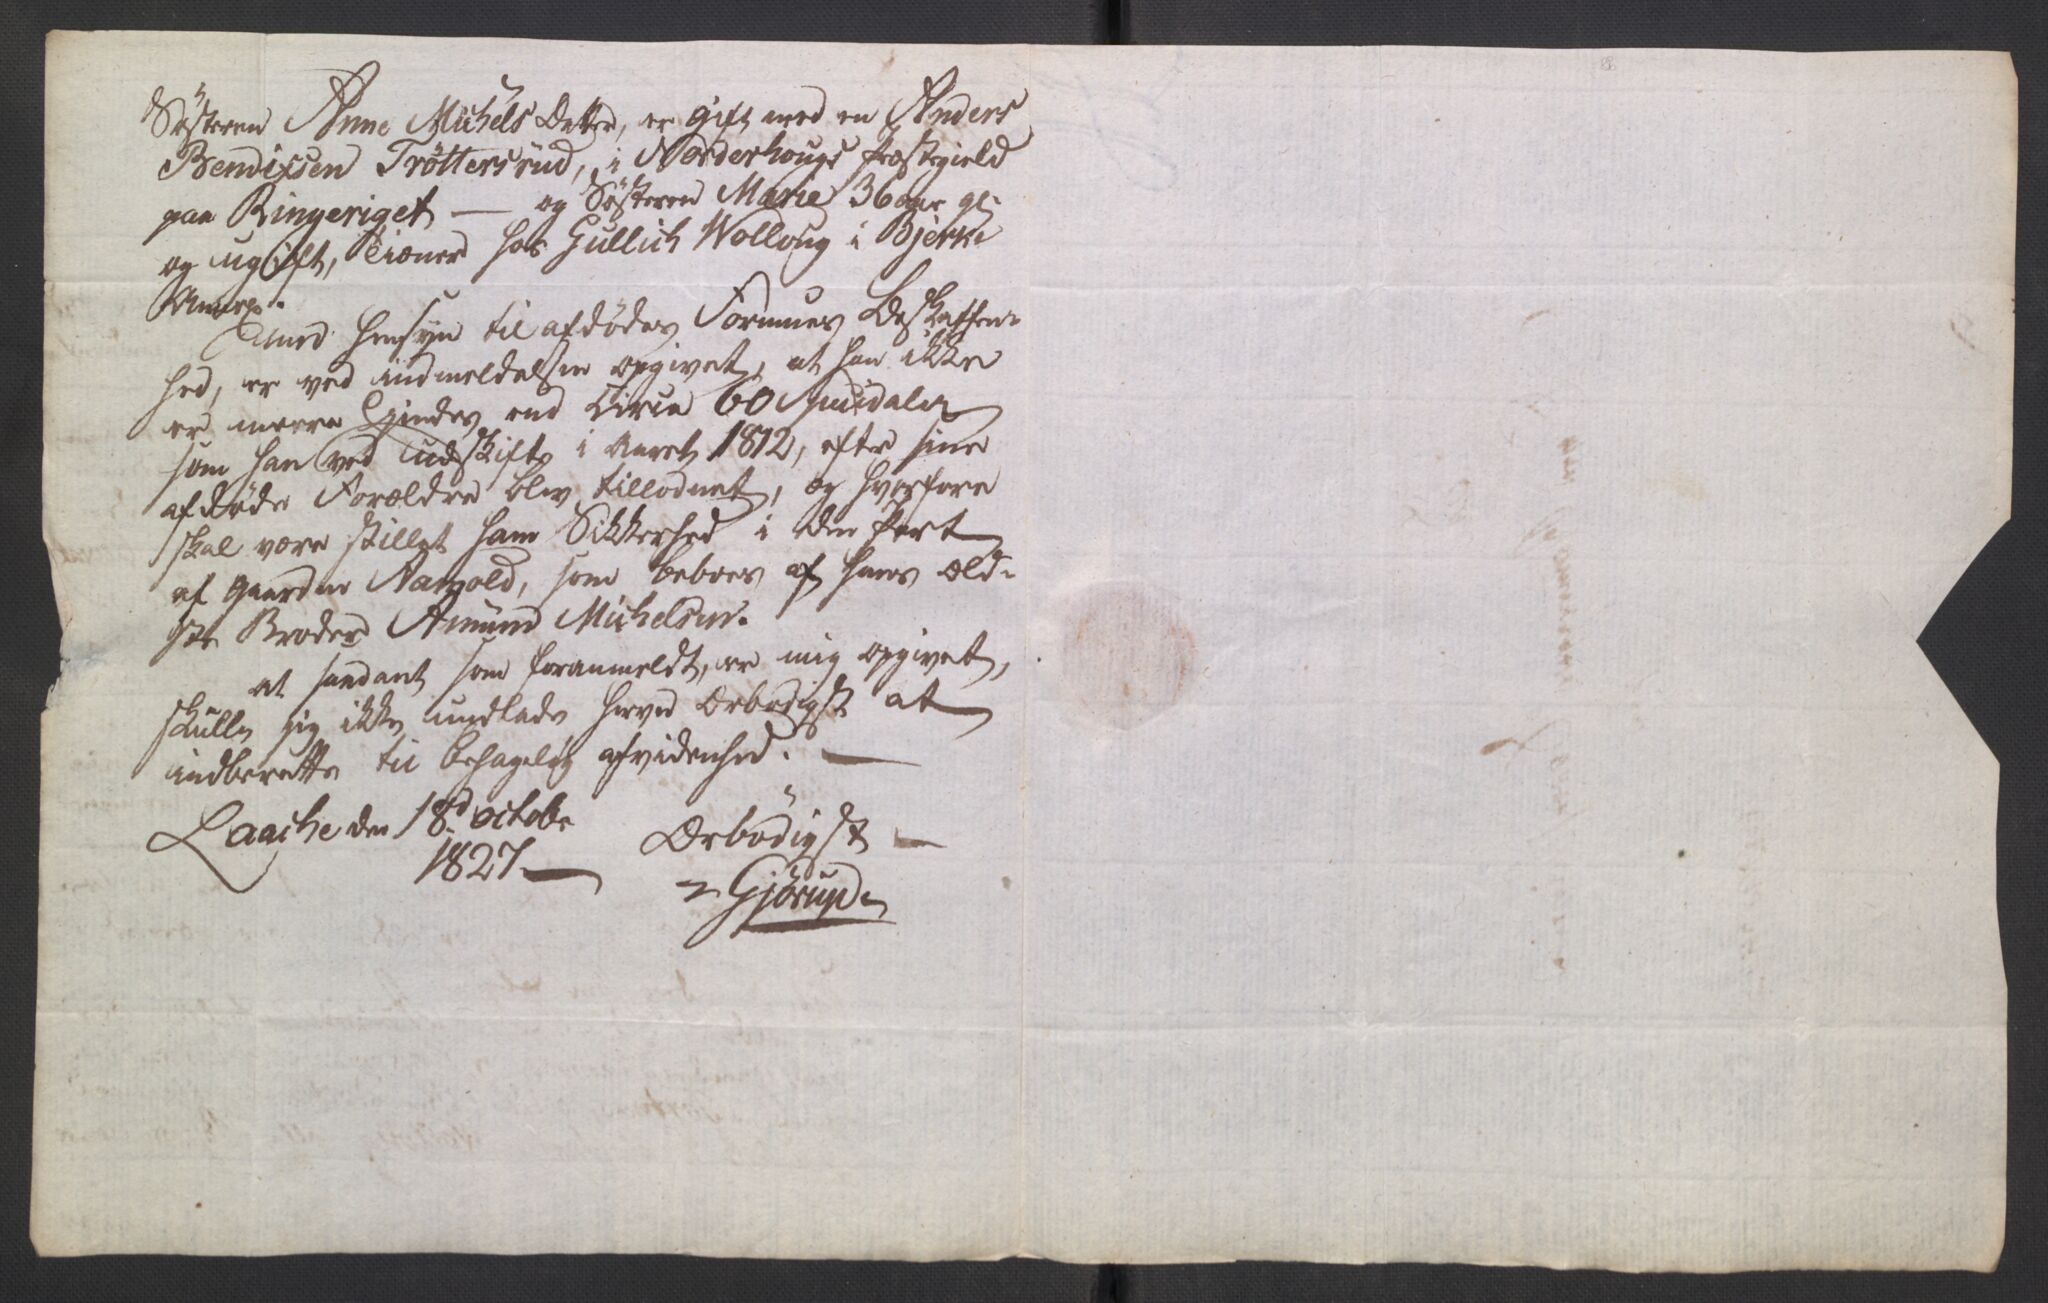 Søsteren Anne Michels Datter, er gift med en Anders
Bendixsen Trøttersrud, i Norderhougs Præstegield
paa Ringeriget — og Søsteren Marie 36 aar gl:
og ugift, tiener hos Gullich Wolloug i Bjerke
Annex.
Med Hensyn til afdødes Formues Beskaffen-
hed, er ved anmeldelsen opgivet, at han ikke
er meere Eiendes end Circa 60 Spesidaler
som han ved udskifte i Aaret 1812, efter sine
afdøde Forældre blev tillodnet, og hvorfore
skal være stillet ham Sikkerhed i den part
af Gaarden Narvold, som beboes af hans Æld-
ste Broder Amund Michelsen.
at saadant som foranmeldt, er mig opgivet,
skulle jeg ikke undlade herved Ørbødigst at
indberette til behagelig afvidenhed. —
Laache den 18d octobr
1827 —
Ørbødigst —
Gjørup